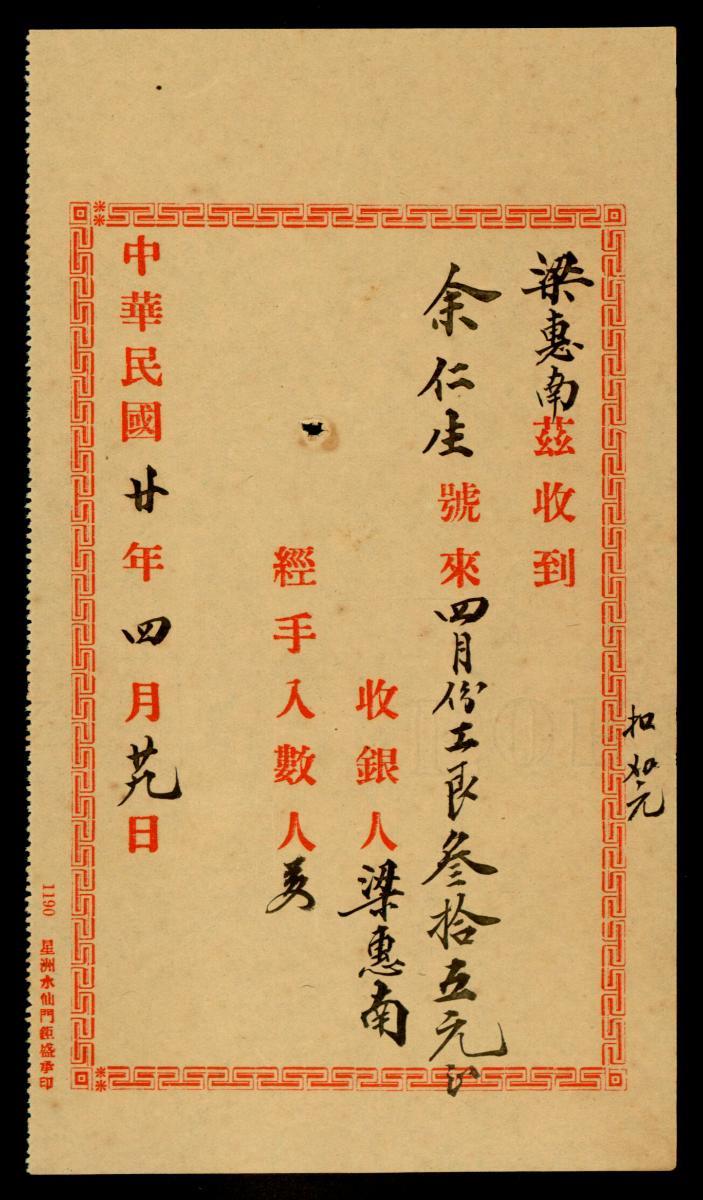 梁惠南茲收到
余仁生號來四月份工艮叁拾五元正
收銀人梁惠南
經手入數人
中華民國廿年四月廿九日
扣
元
1190 星洲水仙門鉅盛承印